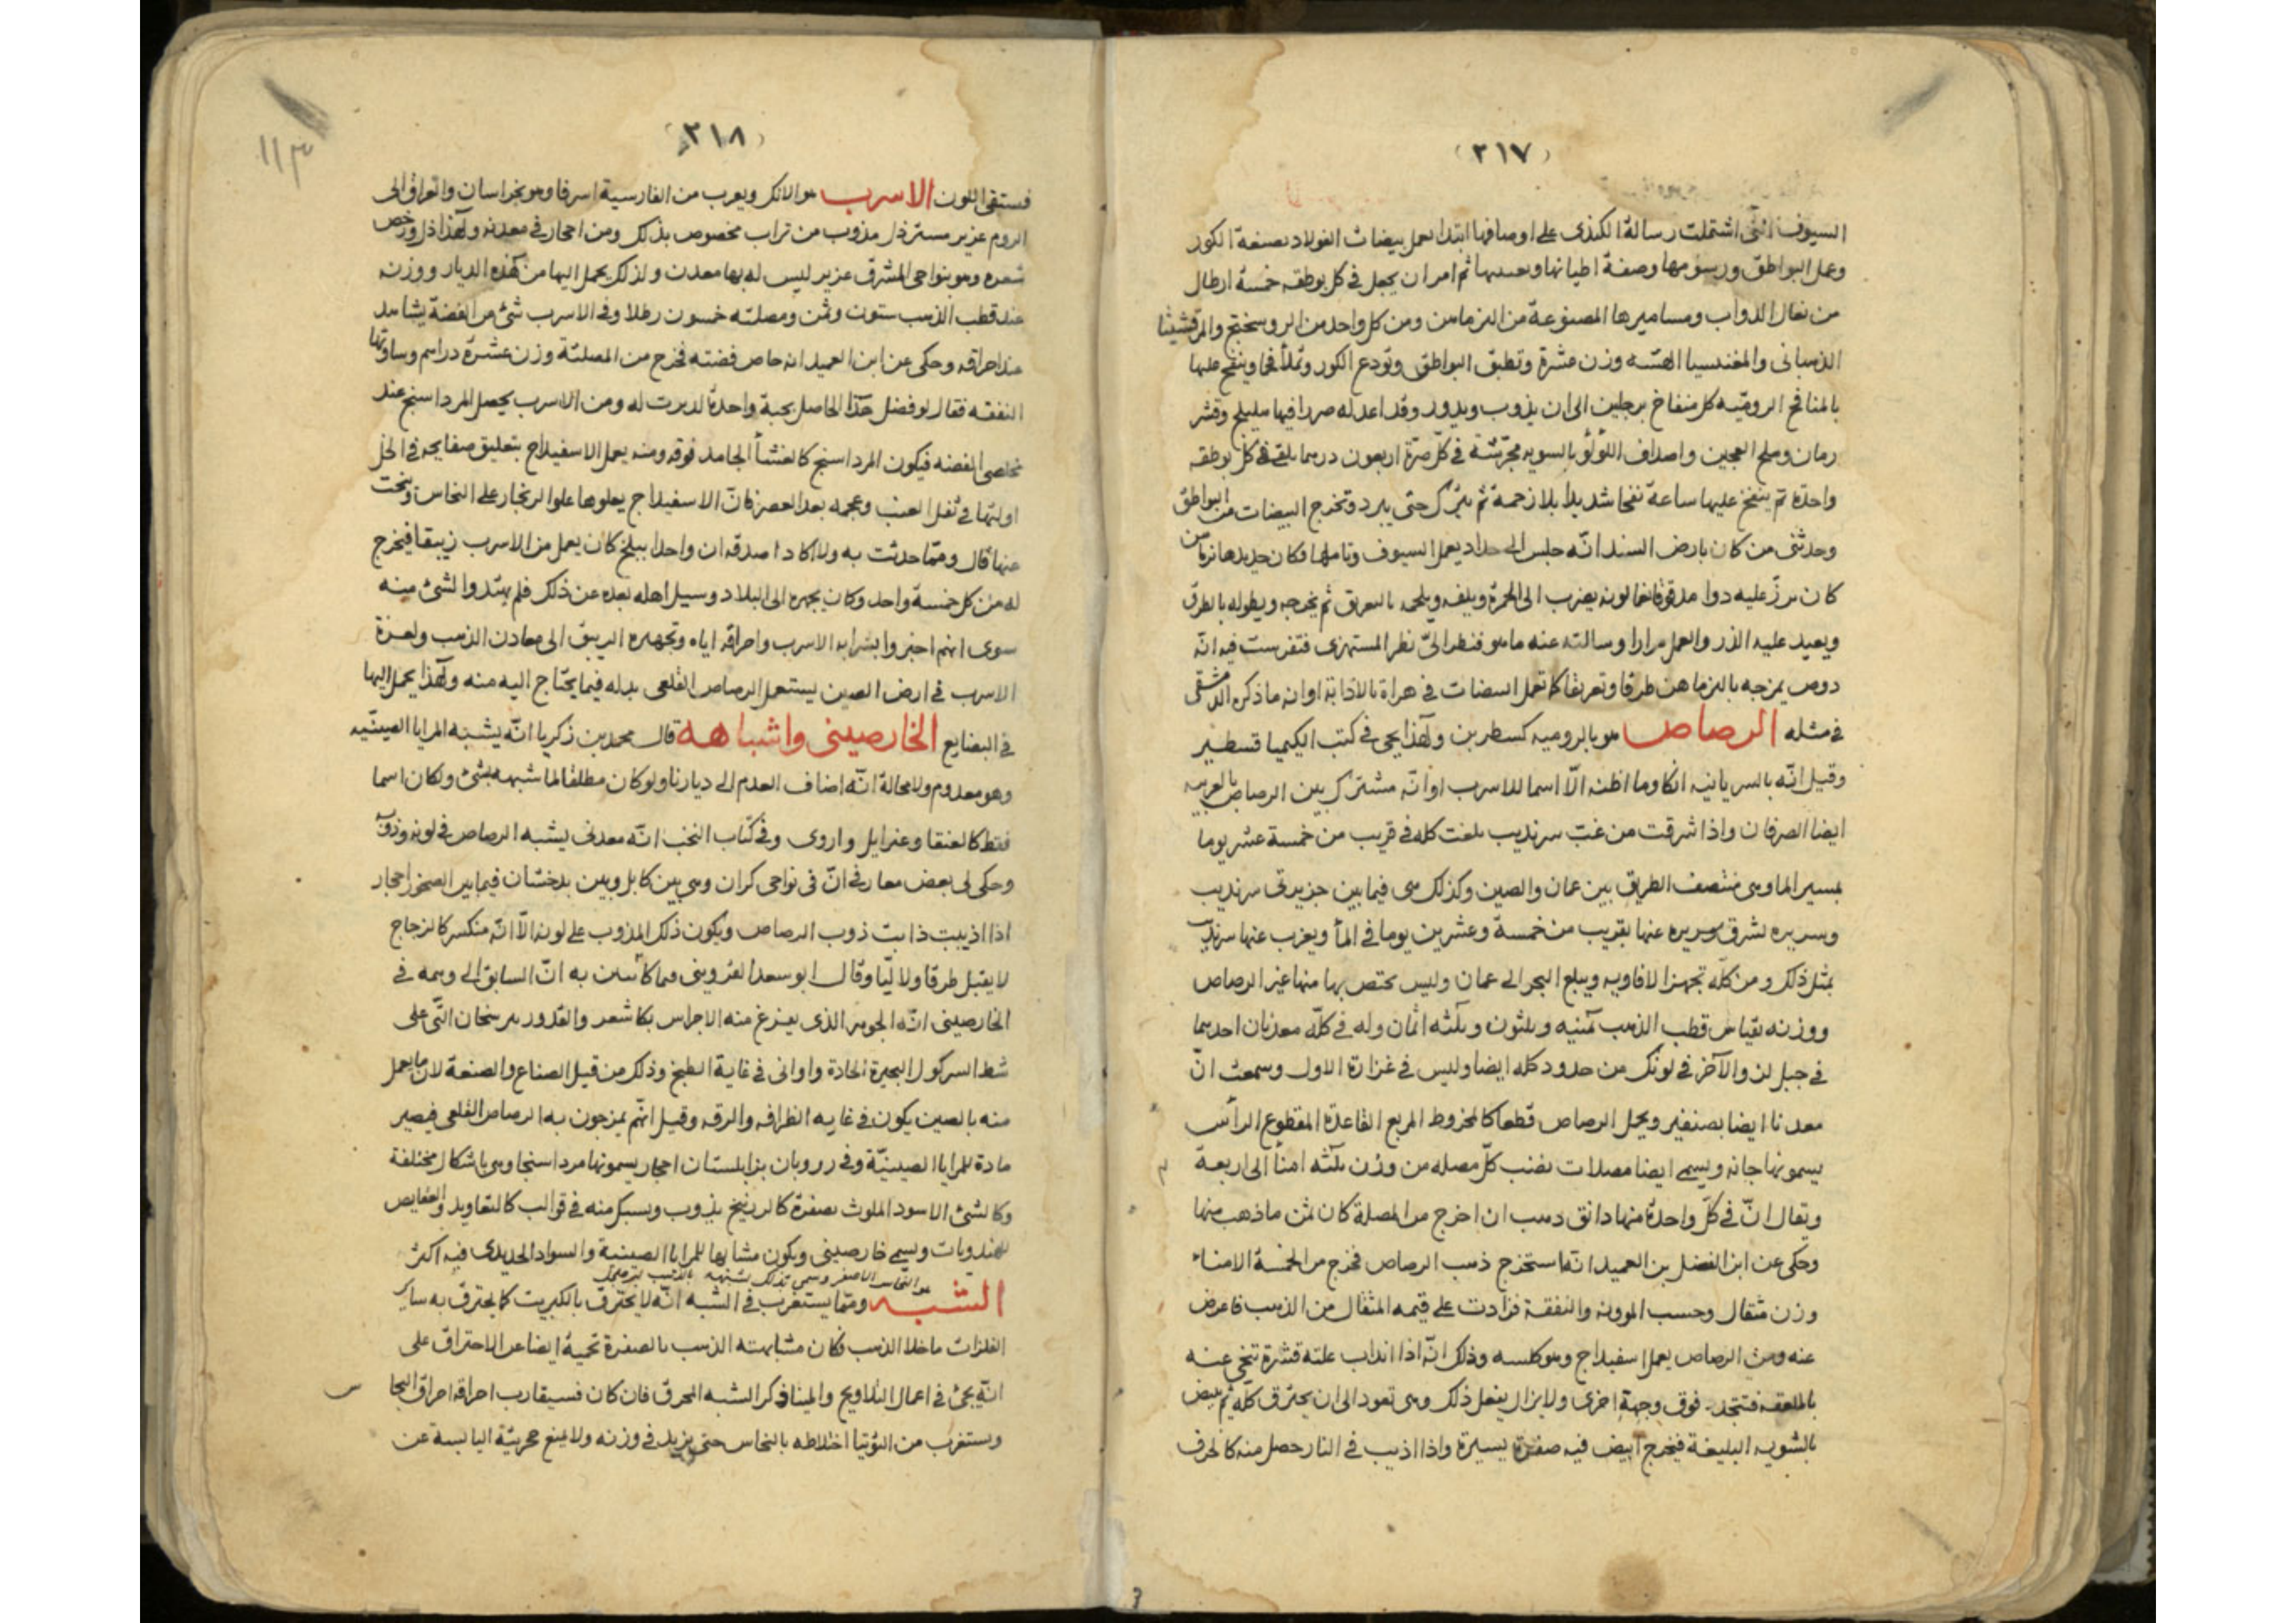 (٢١٧)
السيوف التى اشتملت رسالة الكندى على اوصافها ابتدا بعمل بيضات الفولاد بصنعة الكور
وعمل البواطق ورسومها وصفة اطيانها ثم امر ان يجعل فى كل بوطقه خمسة ارطال
من نعال الدواب ومساميرها المصنوعة من النرماهن ومن كل واحد من الروسختج والمرقشيثا
الذهبانى والمغنسيا الهشه وزن عشرة وتطبق البواطق وتودع الكور وتملأ فحما وينفخ عليها
بالمنافخ الروميه كل منفاخ برجلين الى ان يذوب ويدور وقد اعد له صررا فيها هليلج وقشر
رمان وملح العجين واصداف اللؤلؤ بالسويه مجرشة فى كل صرة اربعون درهما يلقى فى كل بوطقه
واحدة ثم ينفخ عليها ساعة نفخا شديدا بلا رحمة ثم يترك حتى يبرد وتخرج البيضات من البواطق
وحدثنى من كان بارض السند انه جلس الى حداد يعمل السيوف وتاملها فكان حديدها نرماهن
كان يذر عليه دوا مدقوقا لونه يضرب الى الحمرة ويلفه ويلحمه بالتعريق ثم يخرجه ويطوله بالطرق
ويعيد عليه الذر والعمل مرارا وسالته عنه ما هو فنظر الىّ نظر المستهزى فتفرست فيه انه
دوص يمزجه بالنرماهن طرقا وتعريقا كما تعمل البيضات فى هراة بالاذابة اوانه ما ذكره الدمشقى
فى مثله الرصاص هو بالروميه كسطرين ولهذا يجى فى كتب الكيميا قسطير
وقيل انه بالسريانيه انكا وما اظنه الا اسما للاسرب او انه مشترك بين الرصاص بالعربيه
ايضا الصرفان واذا شرقت من غب سرنديب بلغت كله فى قريب من خمسة عشر يوما
بمسير الما وهى منتصف الطريق بين عمان والصين وكذلك هى فيما بين جزيرتى سرنديب
وسريره تشرق سريره عنها بقريب من خمسة وعشرين يوما فى الماء ويغرب عنها سرنديب
بمثل ذلك ومن كله تجهز الافاويه ويبلع البحر الى عمان وليس يختص بها منها غير الرصاص
ووزنه بقياس قطب الذهب ثمنيه وثلثون وثلثه اثمان وله فى كله معدنان احدهما
فى جبل لن والآخر فى لونك من حدود كله ايضا وليس فى غزارة الاول وسمعت ان
معدنا ايضا بصنفير ويحمل الرصاص قطعا كالمخروط المربع القاعدة المقطوع الرأس
يسمونها جانه ويسمى ايضا مصلات نصنب كل مصله من وزن ثلثه امنأ الى اربعة
ويقال ان فى كل واحدة منها دانق ذهب ان اخرج من المصلة كان ثمن ما ذهب منها
وحكى عن ابن الفضل بن العميد انه استخرج ذهب الرصاص فخرج من الخمسة الامناء
وزن مثقال وحسب الموونه والنفقة فزادت على قيمه المثقال من الذهب فاعرض
عنه ومن الرصاص يعمل اسفيداج وهو كلسه وذلك انه اذا انذاب علته قشرة تنحى عنه
بالملعقه فتتجدد فوق وجهه اخرى ولا يزال يفعل ذلك وهى تعود الى ان يحترق كله ثم يبيض
بالشويه البليغة فيخرج ابيض فيه صفرة يسيرة واذا اذيب فى النار حصل منه كالخزف
(٢١٨)
١١٣
فستقى اللون الاسرب هو الانك ويعرب من الفارسية اسرفا وهو بخراسان والعراق الى
الروم عزير مسترذل مذوب من تراب مخصوص بذلك ومن احجار فى معدنه ولهذا ذل ورخص
سعره وهو بنواحى المشرق عزيز ليس له بها معدن ولذلك يحمل اليها من هذه الديار ووزنه
عند قطب الذهب ستون وثمن ومصلته خمسون رطلا وفى الاسرب شئ من الفضة يشاهد
عند احراقه وحكى عن ابن العميد انه خاص فضته فخرج من المصلتة وزن عشرة دراهم وساوتها
النفقه فقال لو فضل هذا الحاصل بحبة واحدة لدبرت له ومن الاسرب يحصل المرداسنج عند
تخلص الفضه فيكون المرداسنج كالغشأ الجامد فوقه ومنه يعمل الاسفيداج بتعليق صفايحه فى الخل
اولتها فى ثفل العنب وعجمه بعد العصر فان الاسفيداج يعلوها علو الزنجار على النحاس ونحت
عنها قال ومما حدثت به ولا اكاد اصدقه ان واحدا ببلخ كان يعمل من الاسرب زيبقا فيخرج
له من كل خمسة واحد وكان يجهره الى البلاد وسيل اهله بعده عن ذلك فلم يهتدوا لشئ منه
سوى انهم اخبروا بشرايه الاسرب واحراقه اياه وتجهيزه الزيبق الى معادن الذهب ولعزة
الاسرب فى ارض الصين يستعمل الرصاص القلعى بدله فيما يحتاج اليه منه ولهذا يحمل اليها
فى البضايع الخارصينى واشباهه قال محمد بن زكريا انه يشبه المرايا الصينيه
وهو معدوم ولا محالة انه اضاف العدم الى ديارنا ولو كان مطلقا لما شبهه بشئ ولكان اسما
فقط كالعنقا وعزرايل واروى وفى كتاب النخب انه معدنى يشبه الرصاص فى لونه وذوبه
وحكى لى بعض معارفى ان فى نواحى كران وهى بين كابل وبين بدخشان فيما بين الصخور احجار
اذا اذيبت ذابت ذوب الرصاص ويكون ذلك المذوب على لونه الا انه منكسر كالزجاج
لا يقبل طرقا ولا ليا وقال ابو سعد القزوينى به ان السابق الى وهمه فى
الخارصينى انه الجوهر الذى يفرغ منه الاجراس بكاشغر والقدور ببرسخان التى على
شط اسيكول البحيرة الحادة واوانى فى غاية الطبخ وذلك من قبل الصناع والصنعة لان ما يعمل
منه بالصين يكون فى غايه الظرافه والرقه وقيل انهم يمزجون به الرصاص القلعى فيصير
مادة للمرايا الصينيّة وفى زروبان بزابلستان احجار يسمونها مرداسنجا وهى باشكال مختلفة
وكالشئ الاسود الملوث بصفرة كالزرنيخ يذوب ويسبك منه فى قوالب كالتعاويذ
للهندويات ويسمى خارصينى ويكون مشابها للمرايا الصينية والسواد الحديدى فيه اكثر
هو النحاس الاصفر وسمى بذلك لشبهه بالذهب
الشبه ومما يستغرب فى الشبه انه لا يحترق بالكبريت كما يحترق به ساير
الفلزات ما خلا الذهب فكان مشابهته الذهب بالصفرة تحميه ايضا عن الاحتراق على
انه يجئ فى اعمال التلاويح والمينا ذكر الشبه المحرق فان كان فسيقارب احراقه احراق النحا
س
ويستغرب من التوتيا اختلاطه بالنحاس حتى يزيد فى وزنه ولا يمنع حجريّة اليابسة عن